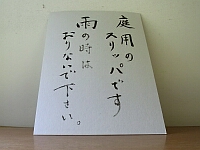 庭用の
スリッパです
雨の時は
おりないで下さい。